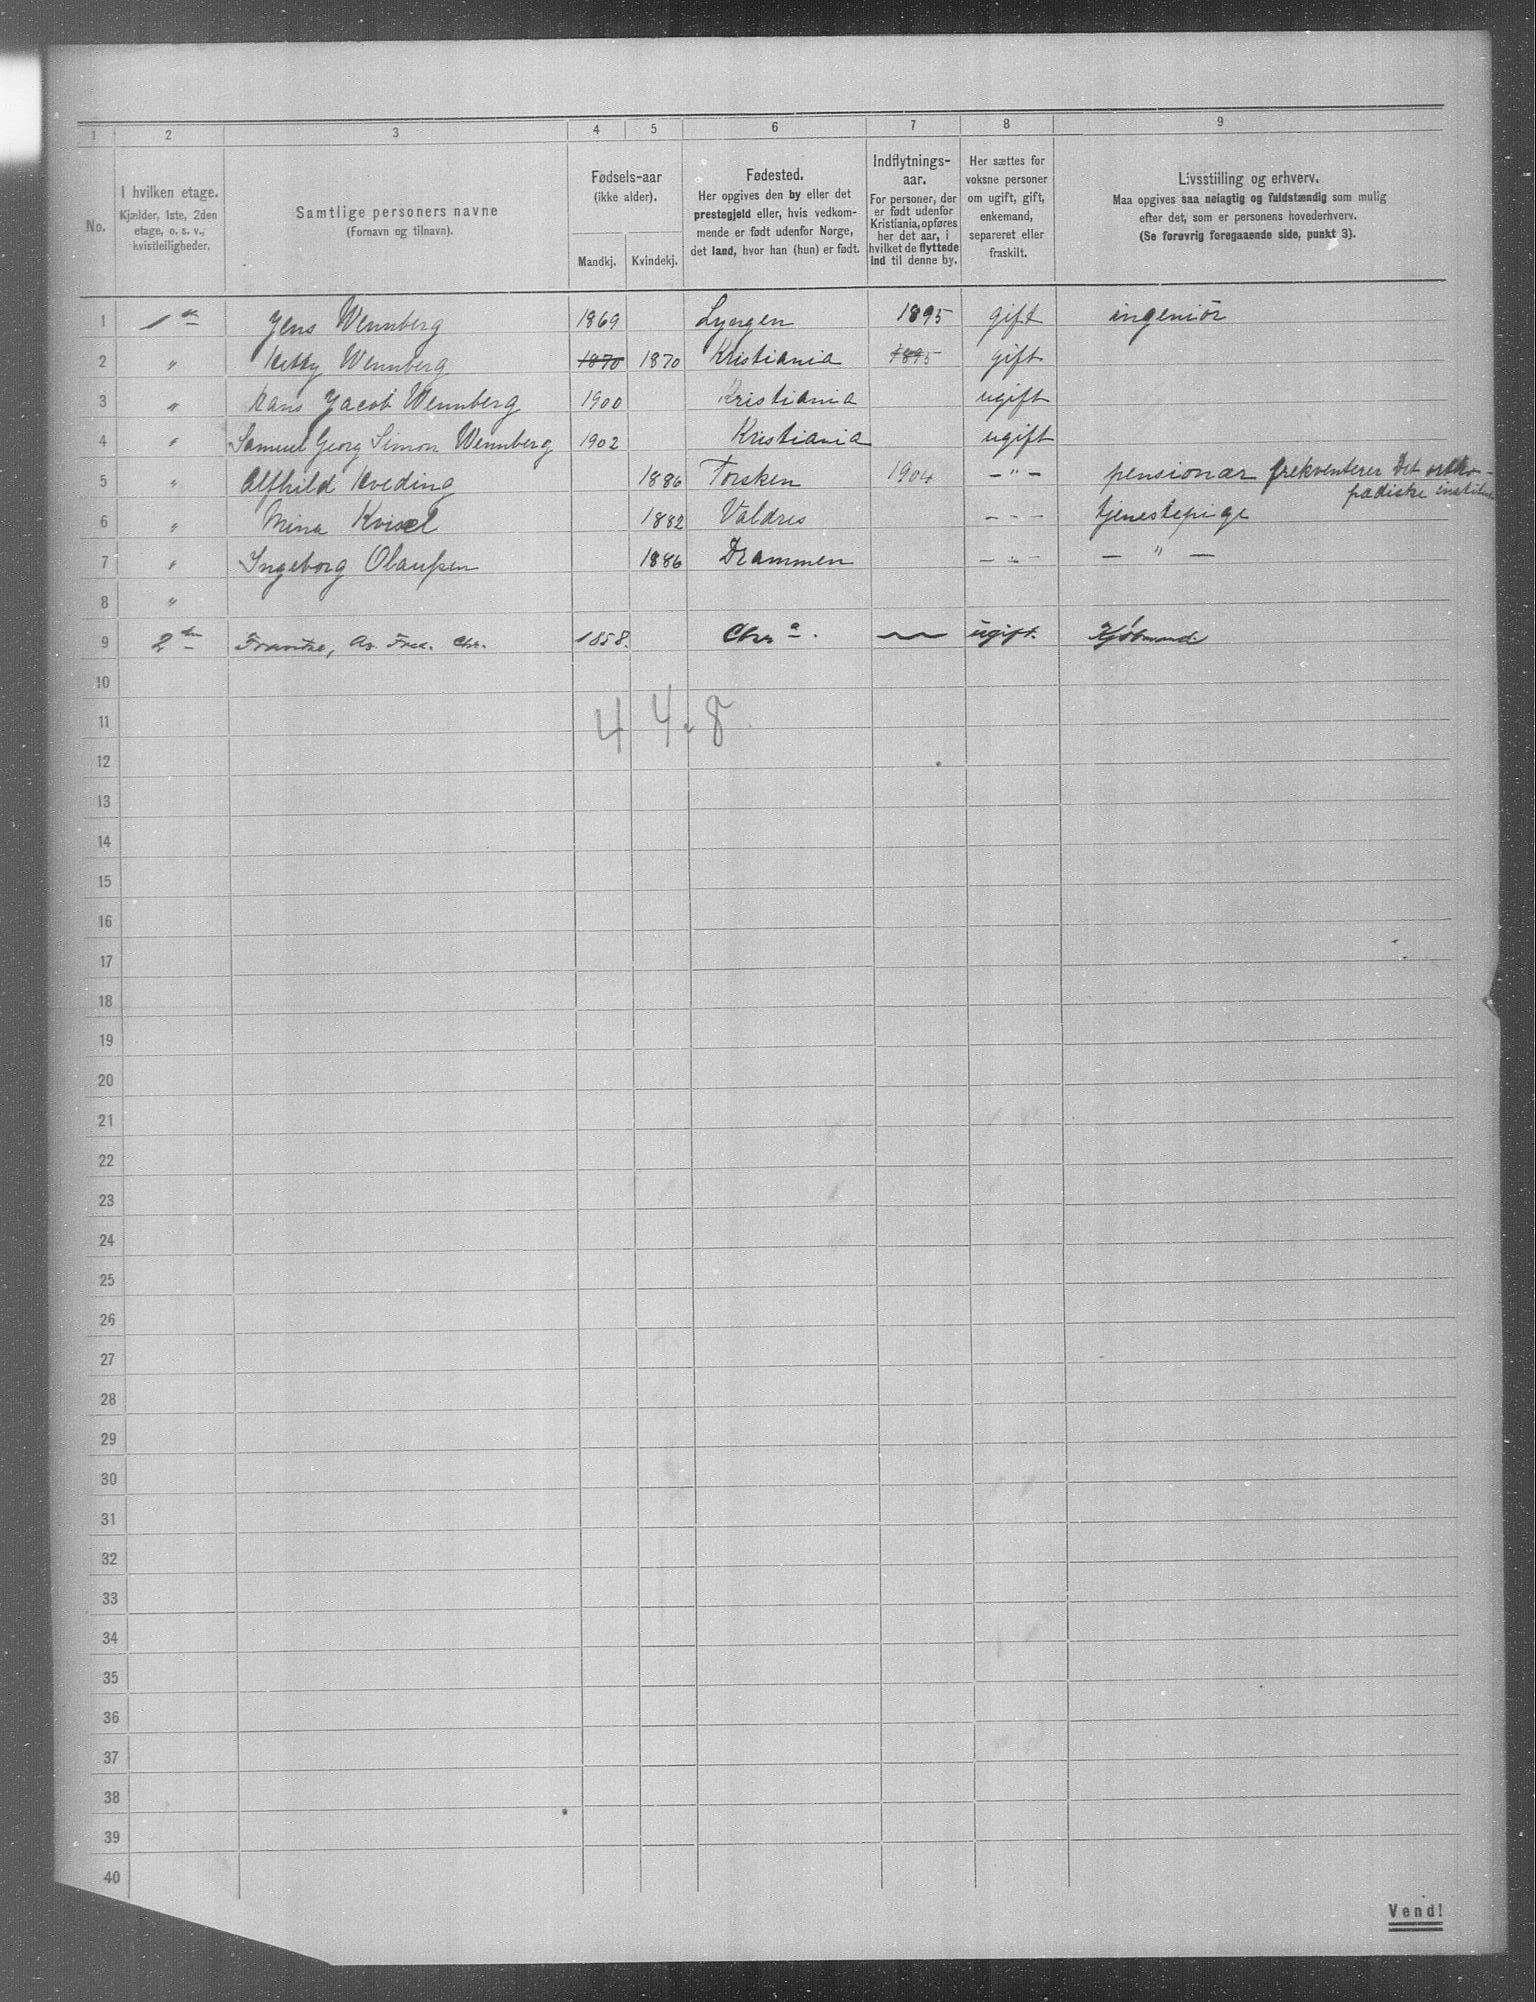 1 2 3 4 5 6 7 8 9
No.
I hvilken etage.
Kjælder, 1ste, 2den
etage, o. s. v.,
kvistleiligheder.
Samtlige personers navne
(Fornavn og tilnavn).
Fødsels-aar
(ikke alder).
Mandkj. Kvindekj.
Fødested.
Her opgives den by eller det
prestegjeld eller, hvis vedkom-
mende er født udenfor Norge,
det land, hvor han (hun) er født.
Indflytnings-
aar.
For personer, der
er født udenfor
Kristiania, opføres
her det aar, i
hvilket de flyttede
ind til denne by.
Her sættes for
voksne personer
om ugift, gift,
enkemand,
separeret eller
fraskilt.
Livsstilling og erhverv.
Maa opgives saa nøiagtig og fuldstændig som mulig
efter det, som er personens hovederhverv.
(Se forøvrig foregaaende side, punkt 3).
1 1ste Jens Wennberg 1869 Lyngen 1895 gift ingeniör
2 " Ketty Wennberg 1870 1870 Kristiania 1895 gift
3 " Hans Jacob Wennberg 1900 Kristiania ugift
4 " Samuel Georg Simon Wennberg 1902 Kristiania ugift
5 " Alfhild Kveding 1886 Torsken 1904 – " – pensionær frekventerer Det ortho-
pædiske institut
6 " Mina 1882 Valdres – " – tjenestepige
7 " Ingeborg Olaussen 1886 Drammen – " – – " –
8 "
9 2den Fred. Chr. 1858. Chra. ugift. Kjøbmand
10
11 4 4. 8
12
13
14
15
16
17
18
19
20
21
22
23
24
25
26
27
28
29
30
31
32
33
34
35
36
37
38
39
40
Vend!